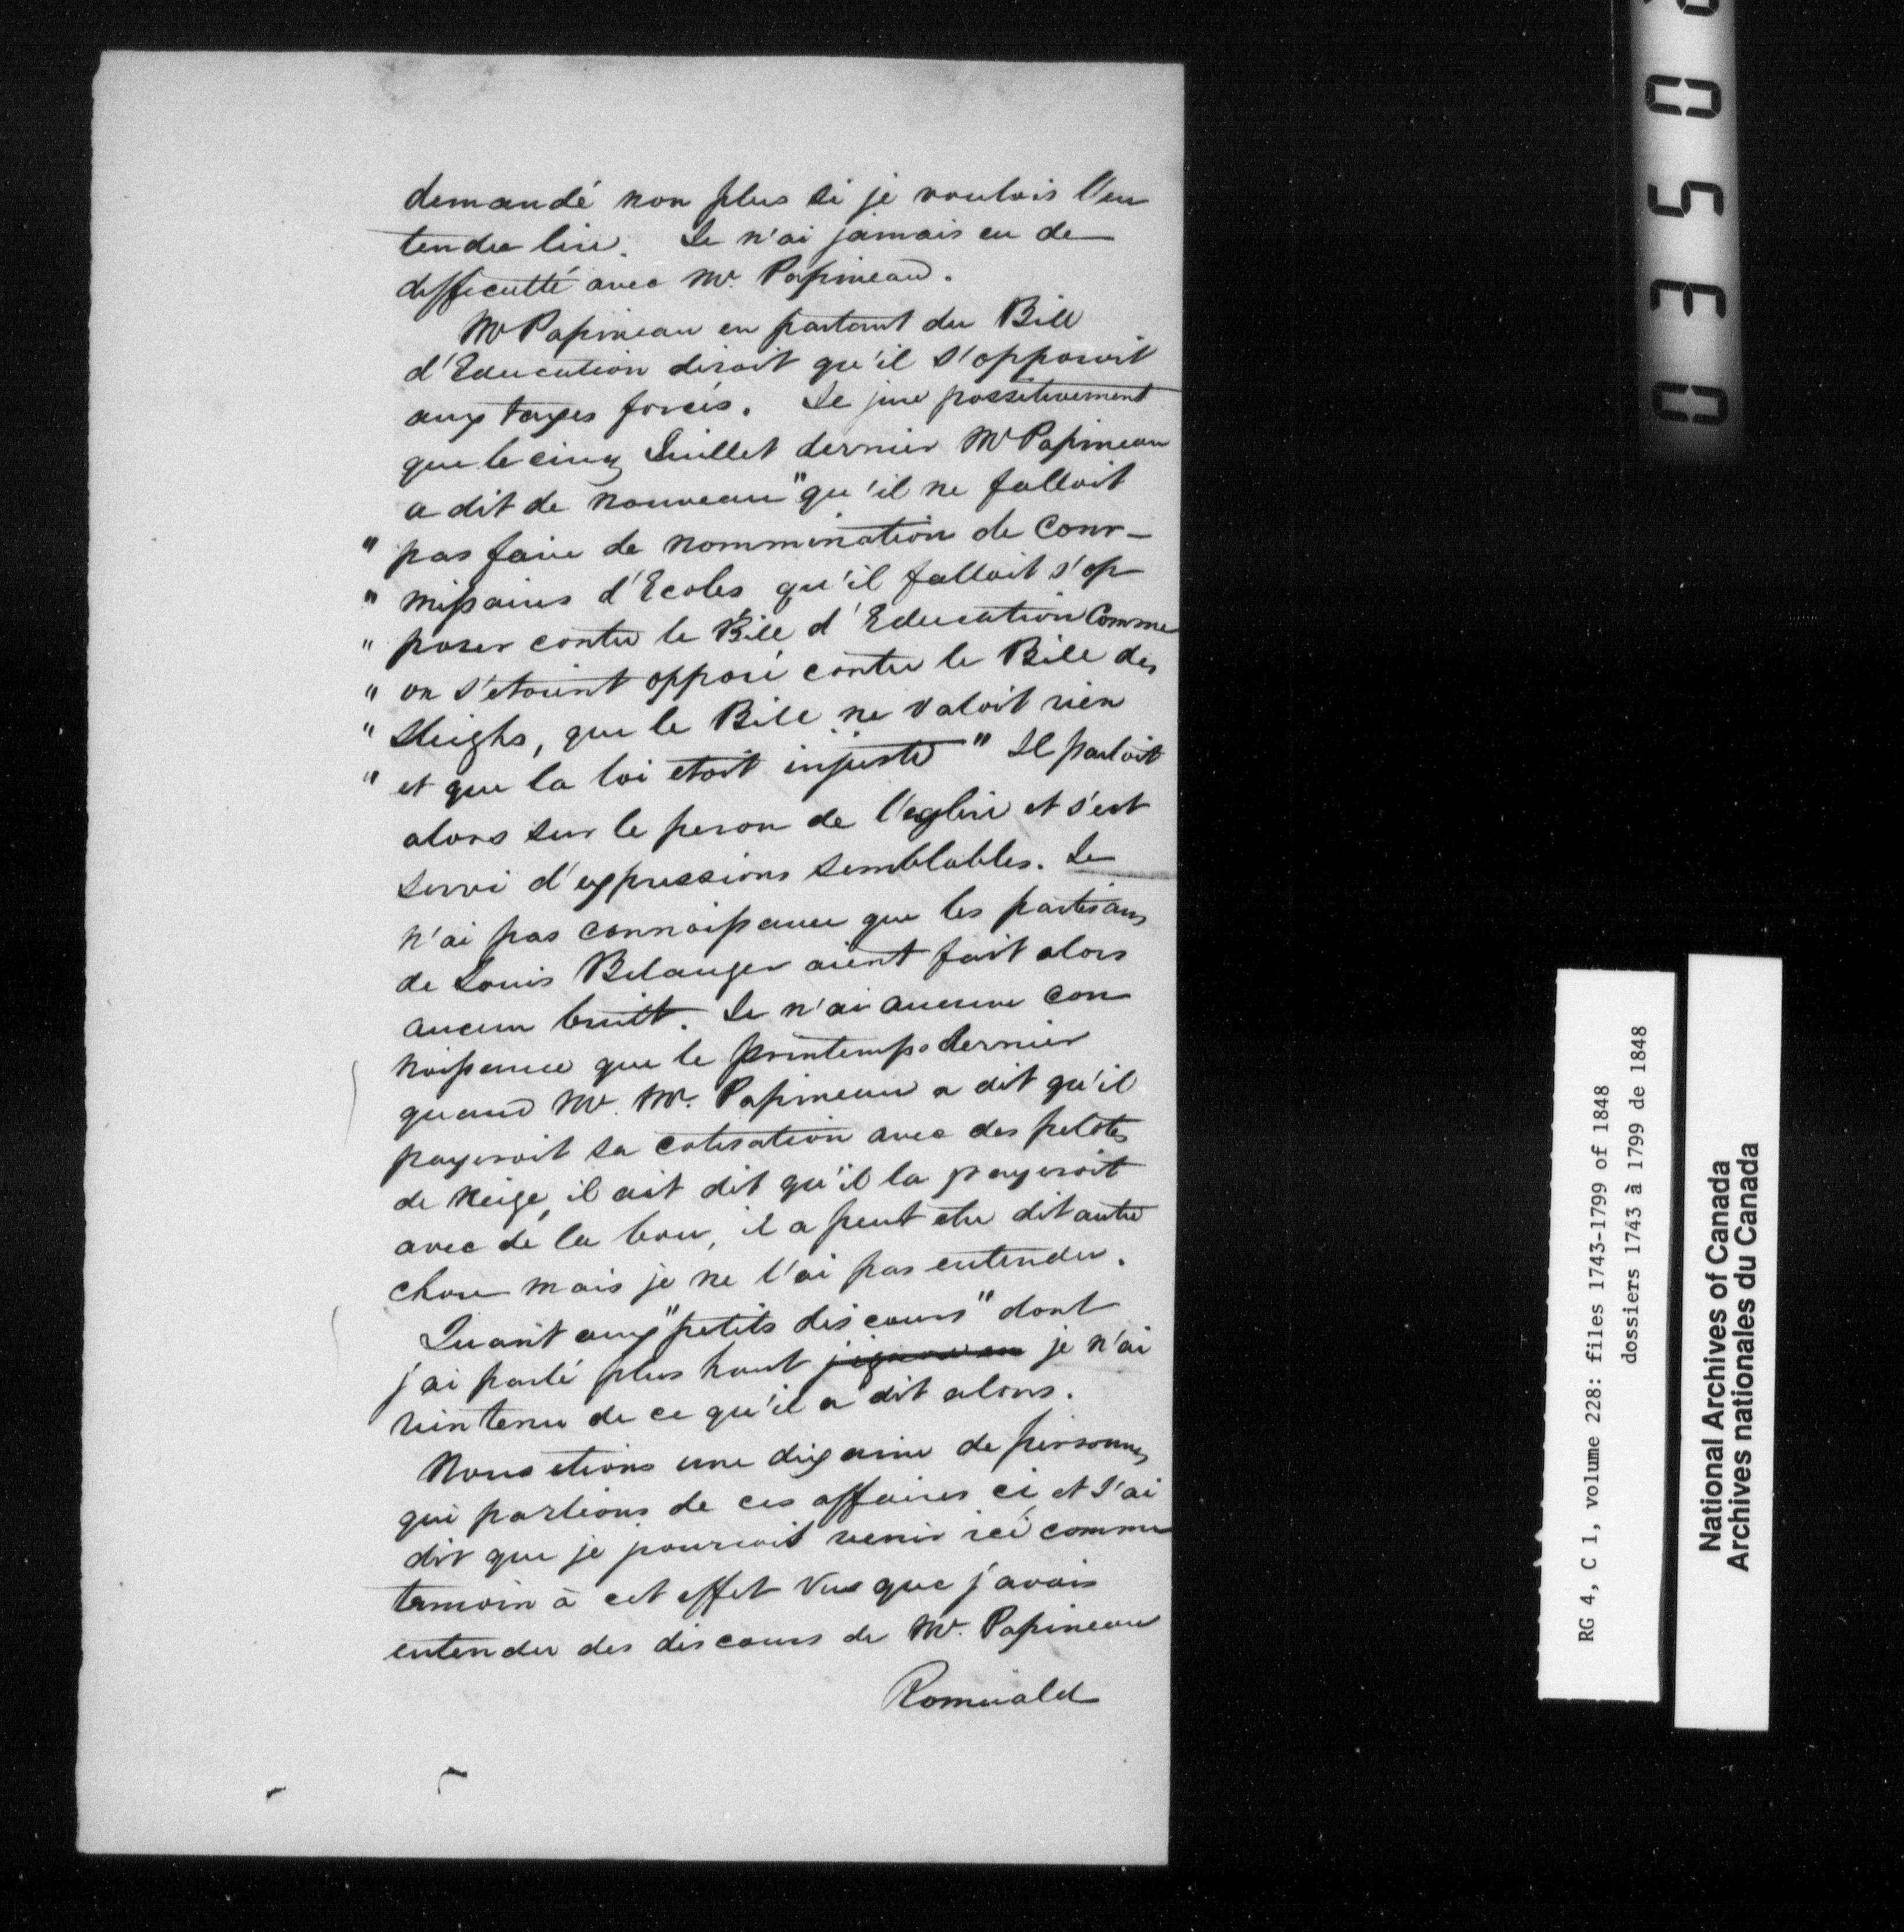 demandé non plus si je voulois l'en
tendre lire. Je n'ai jamais eu de
difficultté avec Mr. Papineau.
Mr Papineau en parlant du Bill
d'Education disoit qu'il s'opposoit
aux taxes forcés. Je jure possitivement
que le cinq Juillet dernier Mr Papineau
a dit de nouveau "qu'il ne falloit
" pas faire de nommination de Com-
" missaires d'Ecoles qu'il falloit s'op
" poser contre le Bill d'Education Comme
" on s'etoient opposé contre le Bill des
" Sleighs, que le Bill ne valoit rien
" et que la loi etoit injuste" Il parloit
alors sur le peron de l'eglise et s'est
servi d'expressions semblables. Je
n'ai pas connoissance que les partisans
de Louis Belanger aient fait alors
aucun bruit. Je n'ai aucune con
noissance que le printemps dernier
quand Mr. Mr. Papineau a dit qu'il
payeroit sa cotisation avec des pelotes
de neige, il ait dit qu'il la payeroit
avec de la boue, il a peut etre dit autre
chose mais je ne l'ai pas entendu.
Quant aux "petits discours" dont
j'ai parlé plus haut je n'ai
rien tenu de ce qu'il a dit alors.
Nous etions une dixaine de personnes
qui parlions de ces affaires ci et J'ai
dit que je pourroit venir ici comme
temoin à cet effet vue que j'avois
entendu des discours de Mr. Papineau
Romuald
0350
RG 4, C 1, volume 228: files 1743-1799 of 1848
dossiers 1743 à 1799 de 1848
National Archives of Canada
Archives nationales du Canada